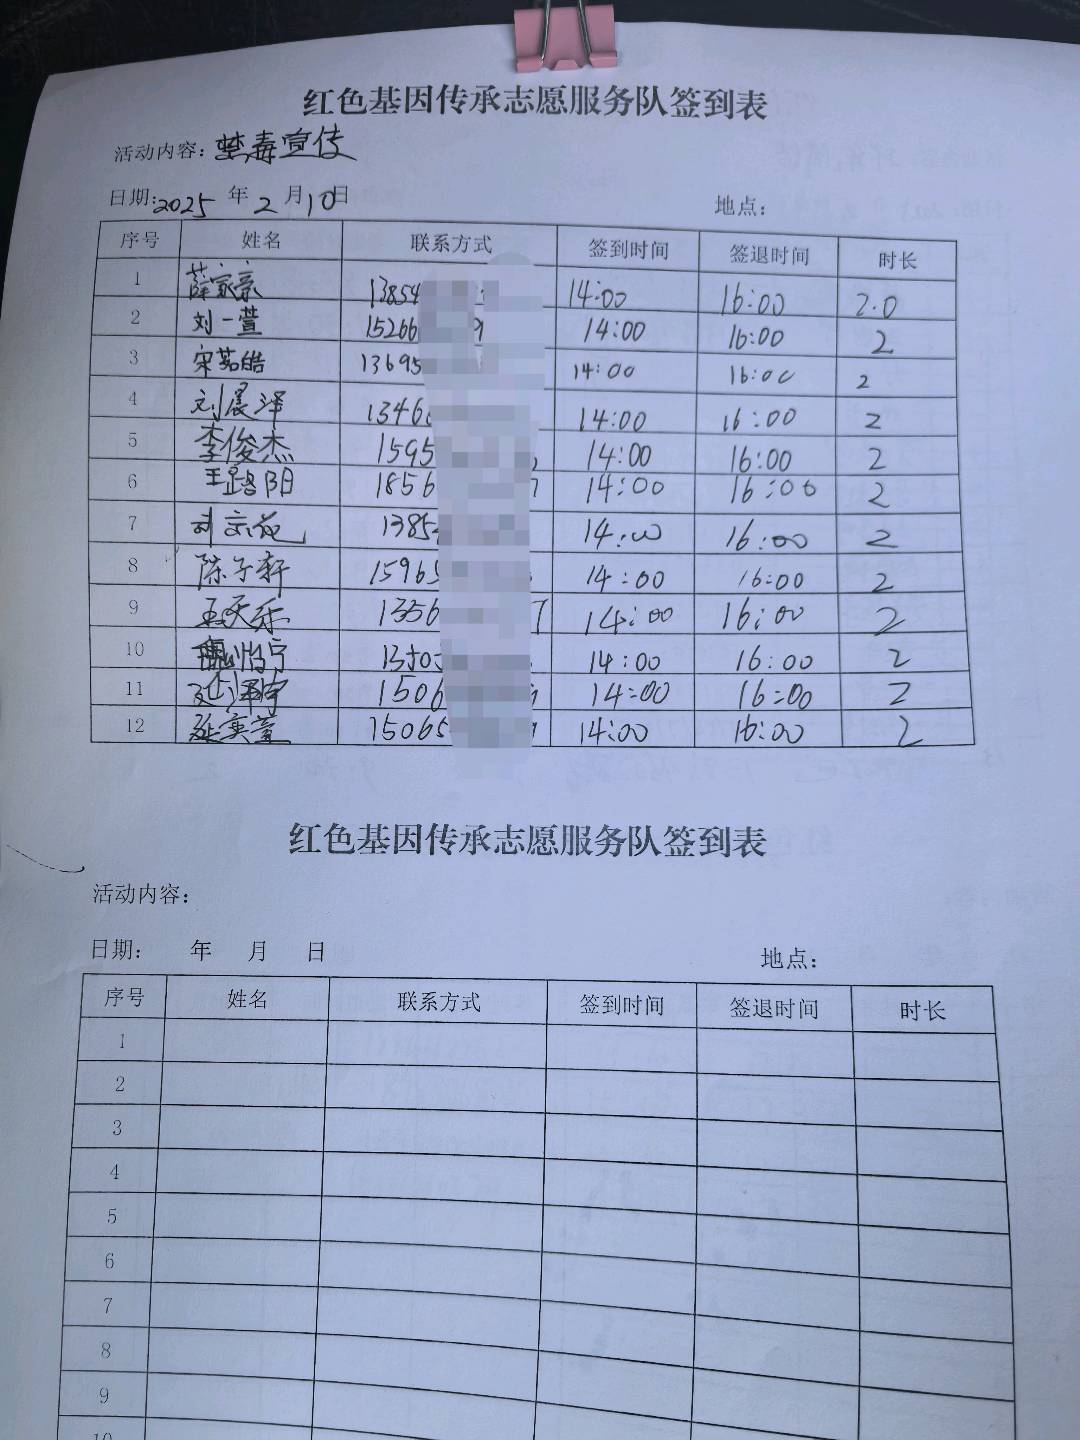 红色基因传承志愿服务队签到表
活动内容：禁毒宣传
日期：2025年2月10日 地点：
序号 姓名 联系方式 签到时间 签退时间 时长
1 薛家豪 13854 14:00 16:00 2.0
2 刘一萱 15266 14:00 16:00 2
3 宋茗皓 13695 14:00 16:00 2
4 刘晨泽 1346 14:00 16:00 2
5 李俊杰 1595 14:00 16:00 2
6 王璐阳 1856 14:00 16:00 2
7 1385 14:00 16:00 2
8 陈子轩 15965 14:00 16:00 2
9 王天乐 1356 14:00 16:00 2
10 1350 14:00 16:00 2
11 1506 14:00 16:00 2
12 15065 14:00 16:00 2
红色基因传承志愿服务队签到表
活动内容：
日期： 年 月 日 地点：
序号 姓名 联系方式 签到时间 签退时间 时长
1
2
3
4
5
6
7
8
9
10